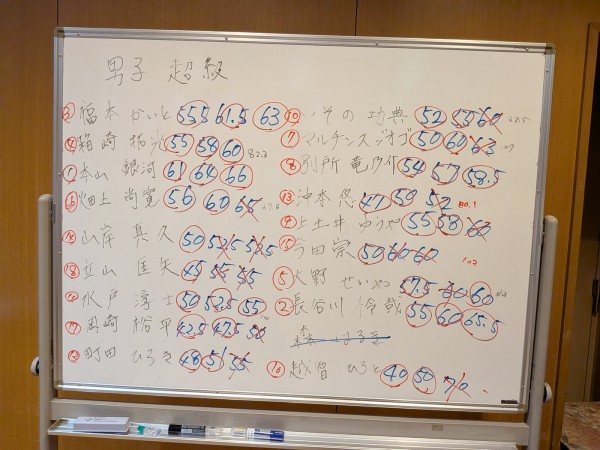 男子 超級
③ 福本 かいと 55.5 61.5 63
④ 箱崎 拓光 55 58 60 82.3
① 本山 銀河 61 64 66
⑥ 畑上 尚寛 56 60 65
⑭ 山岸 真久 50 52.5 52.5
⑱ 立山 匡矢 45 55 55
水戸 淳士 50 52.5 55
⑰ 岡崎 裕甲 42.5 47.5 50
町田 ひろき 48 51 55
⑩ その 功典 52 55 60
⑦ マルチンス ジオゴ 50 60 63
⑧ 別所 竜乃介 54 57 58.5
⑬ 沖本 悠 47 50 52 80.1
上土井 ゆうや 55 58 60
⑮ 今田 崇 50 60 60 102
⑤ 大野 せいや 57.5 60 60
② 長谷川 怜哉 55 60 65.5
森 はるき
⑯ 越智 ひろと 40 50 70